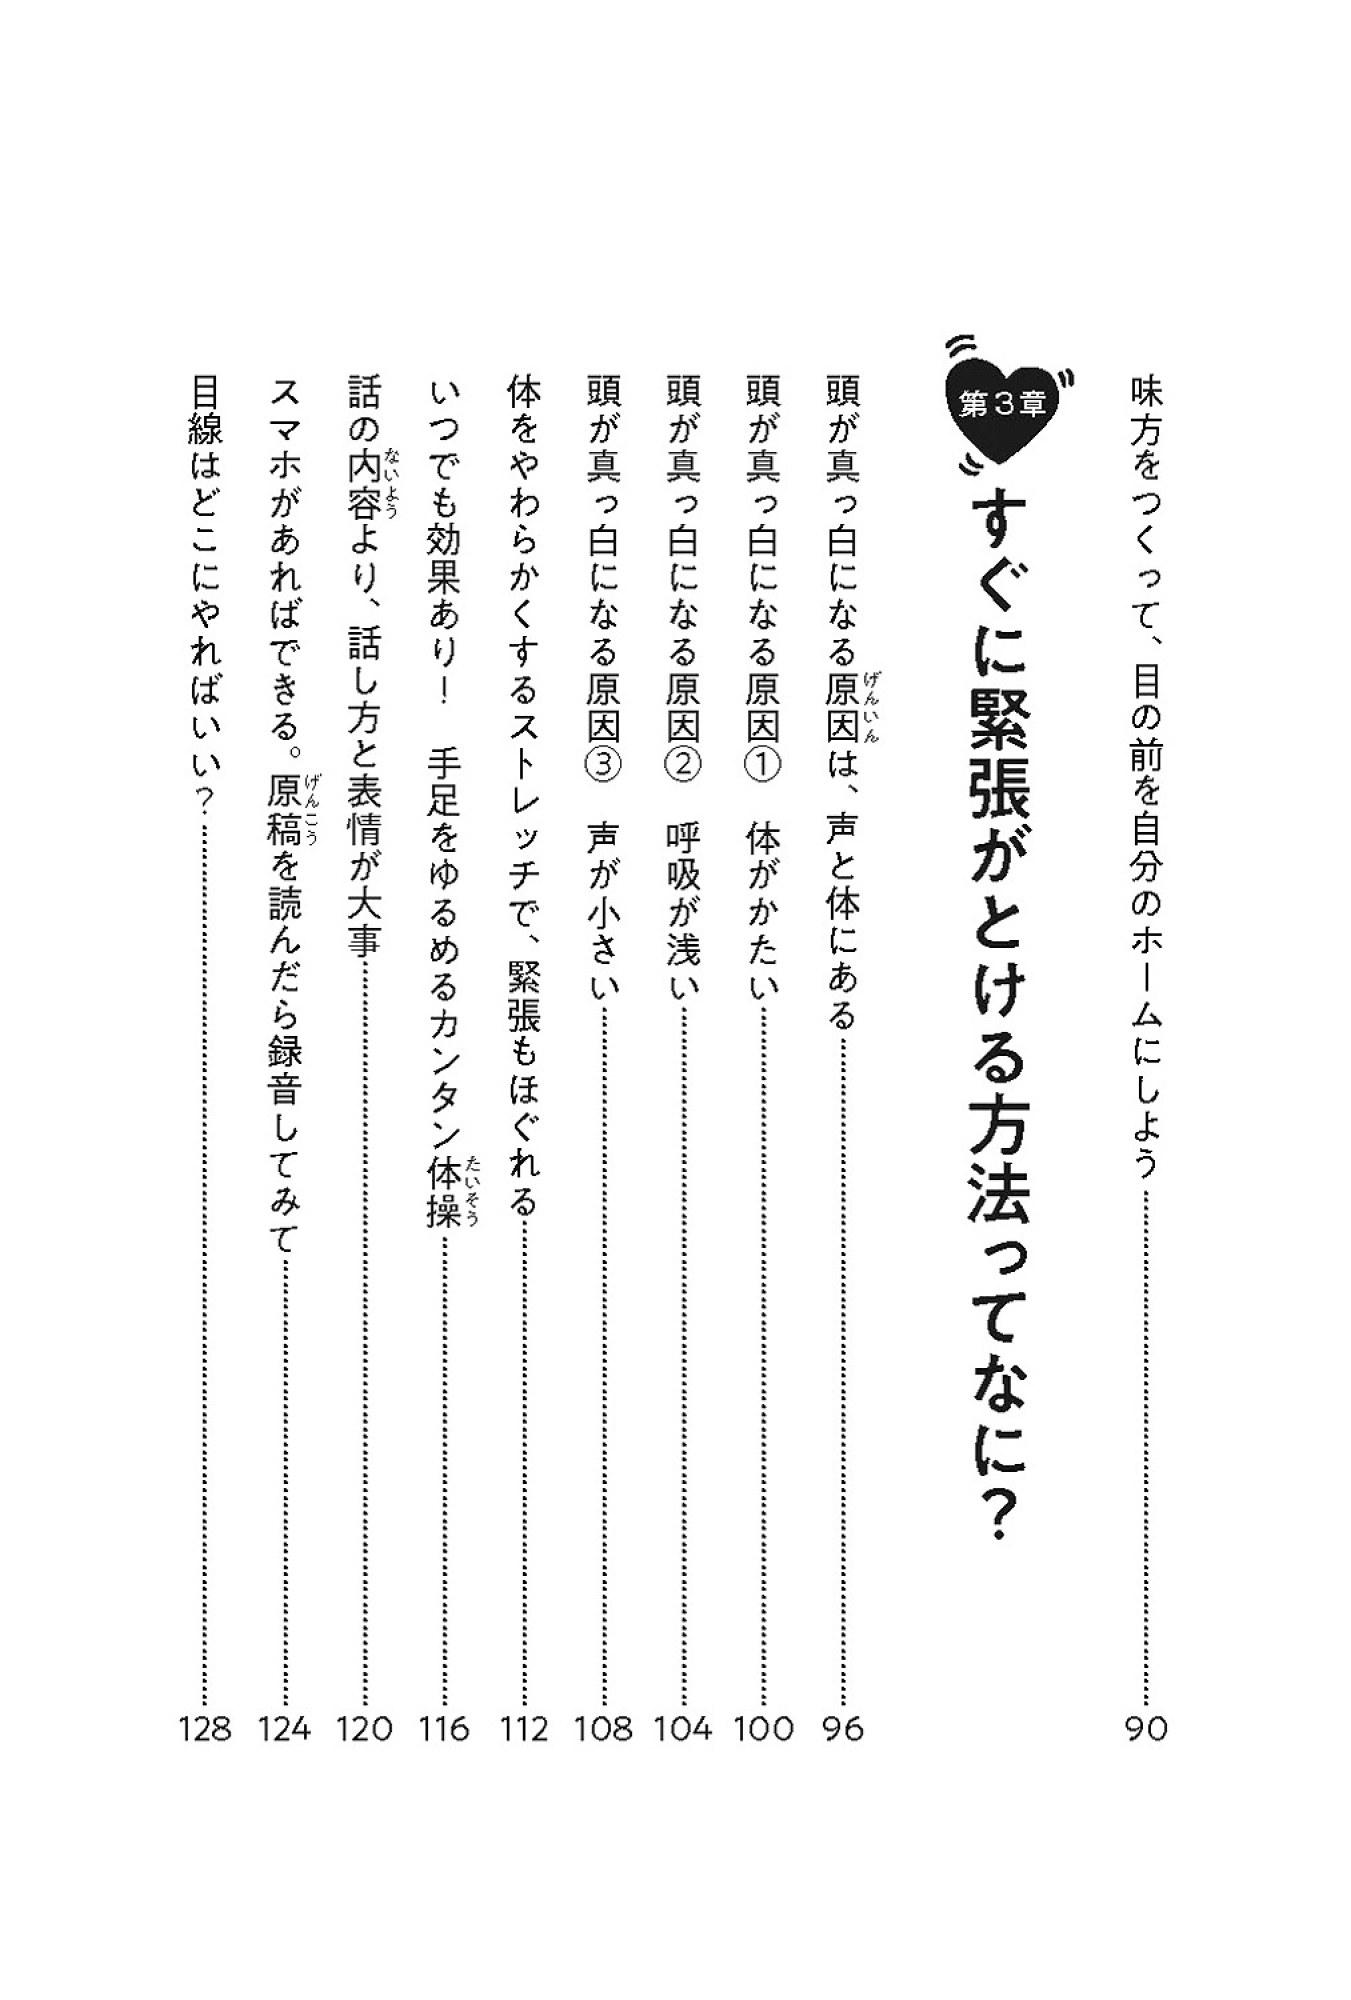 味方をつくって、目の前を自分のホームにしよう 90
第3章
すぐに緊張がとける方法ってなに？
頭が真っ白になる原因は、声と体にある 96
げんいん
頭が真っ白になる原因① 体がかたい 100
頭が真っ白になる原因② 呼吸が浅い 104
頭が真っ白になる原因③ 声が小さい 108
体をやわらかくするストレッチで、緊張もほぐれる 112
いつでも効果あり！ 手足をゆるめるカンタン体操 116
たいそう
話の内容より、話し方と表情が大事 120
ないよう
スマホがあればできる。原稿を読んだら録音してみて 124
げんこう
目線はどこにやればいい？ 128